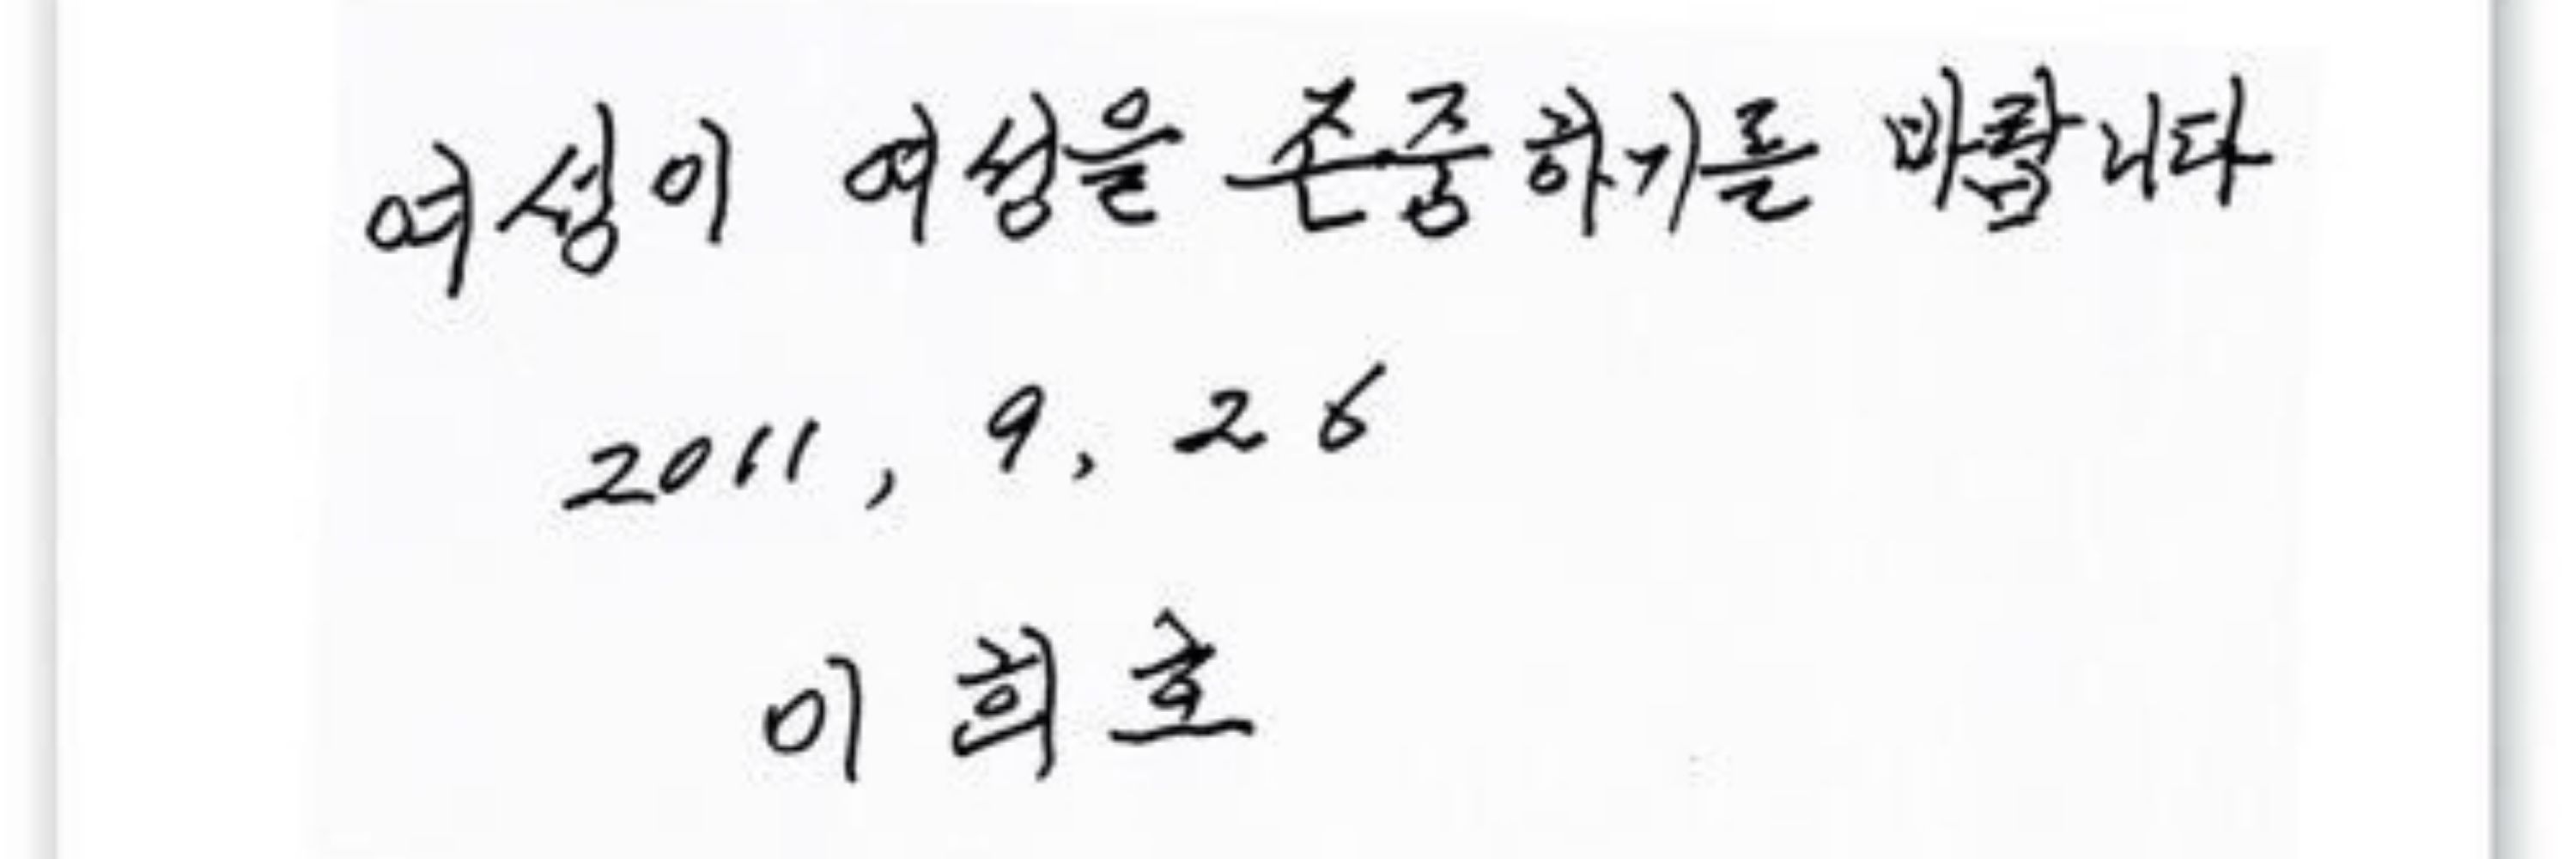 여성이 여성을 존중하기를 바랍니다
2011, 9, 26
이희호